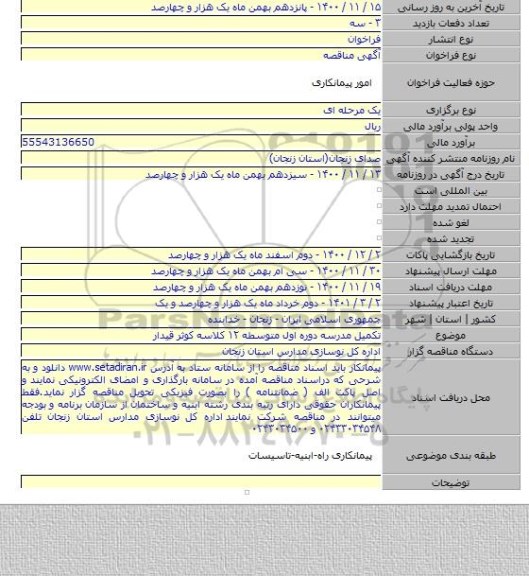 تاریخ آخرین به روز رسانی ۱۵ / ۱۱ / ۱۴۰۰ - پانزدهم بهمن ماه یک هزار و چهارصد
تعداد دفعات بازدید ۳ - سه
نوع انتشار فراخوان
نوع فراخوان آگهی مناقصه
حوزه فعالیت فراخوان امور پیمانکاری
نوع برگزاری یک مرحله ای
واحد پولی برآورد مالی ریال
برآورد مالی 55543136650
نام روزنامه منتشر کننده آگهی صدای زنجان(استان زنجان)
تاریخ درج آگهی در روزنامه ۱۳ / ۱۱ / ۱۴۰۰ - سیزدهم بهمن ماه یک هزار و چهارصد
بین المللی است
احتمال تمدید مهلت دارد
لغو شده
تجدید شده
تاریخ بازگشایی پاکات ۲ / ۱۲ / ۱۴۰۰ - دوم اسفند ماه یک هزار و چهارصد
مهلت ارسال پیشنهاد ۳۰ / ۱۱ / ۱۴۰۰ - سی ام بهمن ماه یک هزار و چهارصد
مهلت دریافت اسناد ۱۹ / ۱۱ / ۱۴۰۰ - نوزدهم بهمن ماه یک هزار و چهارصد
تاریخ اعتبار پیشنهاد ۲ / ۳ / ۱۴۰۱ - دوم خرداد ماه یک هزار و چهارصد و یک
کشور | استان | شهر جمهوری اسلامی ایران - زنجان - خدابنده
موضوع تکمیل مدرسه دوره اول متوسطه ۱۲ کلاسه کوثر قیدار
دستگاه مناقصه گزار اداره کل نوسازی مدارس استان زنجان
پیمانکار باید اسناد مناقصه را از سامانه ستاد به آدرس www.setadiran.ir دانلود و به
شرحی که دراسناد مناقصه آمده در سامانه بارگذاری و امضای الکترونیکی نمایند و
محل دریافت اسناد اصل پاکت الف ( ضمانتنامه ) را بصورت فیزیکی تحویل مناقصه گزار نماید.فقط
پیمانکاران حقوقی دارای رتبه بندی رشته ابنیه و ساختمان از سازمان برنامه و بودجه
میتوانند در مناقصه شرکت نمایند اداره کل نوسازی مدارس استان زنجان تلفن
۰۲۴۳۳۰۳۴۵۴۸ و ۰۲۴۳۰۳۴۵۰۰
طبقه بندی موضوعی پیمانکاری راه-ابنیه-تاسیسات
توضیحات
ParsNamadData
۰۲۱-۸۸۳۴۹۶۷۰-۵